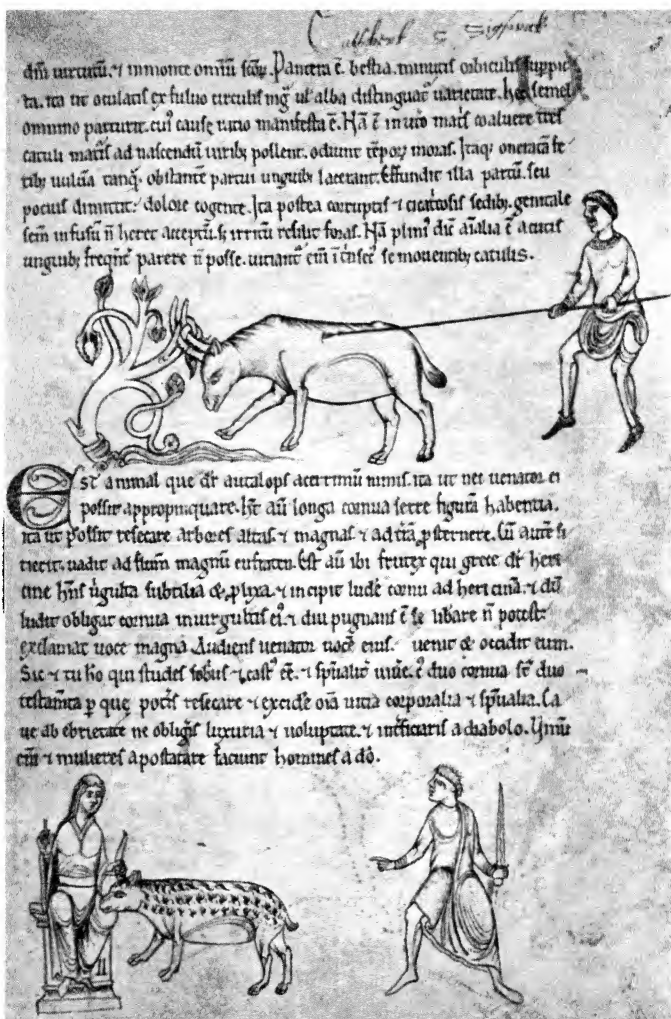 Cuthbert
dñi uirtutũ. ⁊ inmonte omniũ scõꝝ. Pantera ẽ. bestia. minutis orbiculis suppic
ta. ita ut oculatis ex fuluo circulis nigᵃ ul' alba distinguat' uarietate. hec semel
omnino parturit. cui' cause ratio manifesta ẽ. Nã ẽ in utero matris coaluere tres
catuli maturis ad nascendũ uirib; pollent. odiunt tẽporꝝ moras. Itaq; oneratã fe
tib; uuluã tanq̃. obstantẽ partui unguib; lacerant. Effundit illa partũ. seu
pocius dimittit. dolore cogente. Ita postea corruptis ⁊ cicatricosis sedib;. genitale
sem̃ infusũ ñ heret acceptũ. s; irritũ resilit foras. Nã plini' dic̃ aĩalia ẽ acutis
unguib; freq̃nt' parere ñ posse. uiciant' eñi ĩtᵢnsec' se mouentib; catulis.
Est animal que dr̃ autalops acerrimũ nimis. ita ut nec uenator ei
possit appropinquare. h̃t aũ longa cornua serre figurã habentia.
ita ut possit resecare arbores altas. ⁊ magnas ⁊ ad tr̃ã ꝓsternere. Cũ autẽ si
tierit. uadit ad flum̃ magnũ eufraten. Est aũ ibi frutex qui grece dr̃ heri
cine hñs uᵢgulta subtilia & ꝓlixa. ⁊ incipit ludẽ cornu ad hericinã. ⁊ dũ
ludit obligat cornua inuirgultis ei'. ⁊ diu pugnans ẽ se libare ñ potest.
exclamat uoce magna Audiens uenator uocẽ eius. uenit & occidit eum.
Sic ⁊ tu ho qui studes sobri' ⁊ cast' eẽ. ⁊ sp̃ualit' uiuẽ. ẽ duo cornua st̃ duo
testam̃ta ꝑ que potᵢs resecare ⁊ excidẽ oĩa uitia corporalia ⁊ sp̃ualia. Ca
ue ab ebrietate ne obligᵢs luxuria ⁊ uoluptate. ⁊ int̃ficiaris a diabolo. Vinũ
eñi ⁊ mulieres apostatare faciunt homines a dõ.